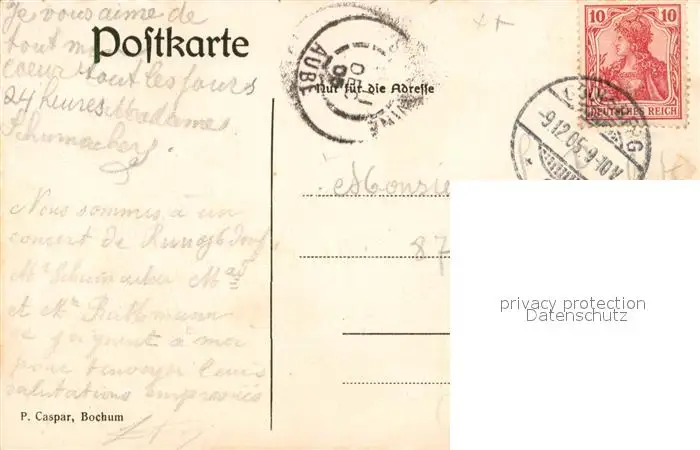 Je vous aime de
tout mon
Postkarte
coeur tout les jours
24 heures Madame
Schumacher
Nur für die Adresse
AUBE
DEC
05
10 10
DEUTSCHES REICH
-9.12.05.9-10V
Monsie
87
privacy protection
Datenschutz
Nous sommes à un
concert de
Mr Schumacher
et Mr
se joignent à moi
pour envoyer leurs
salutations empressées
P. Caspar, Bochum